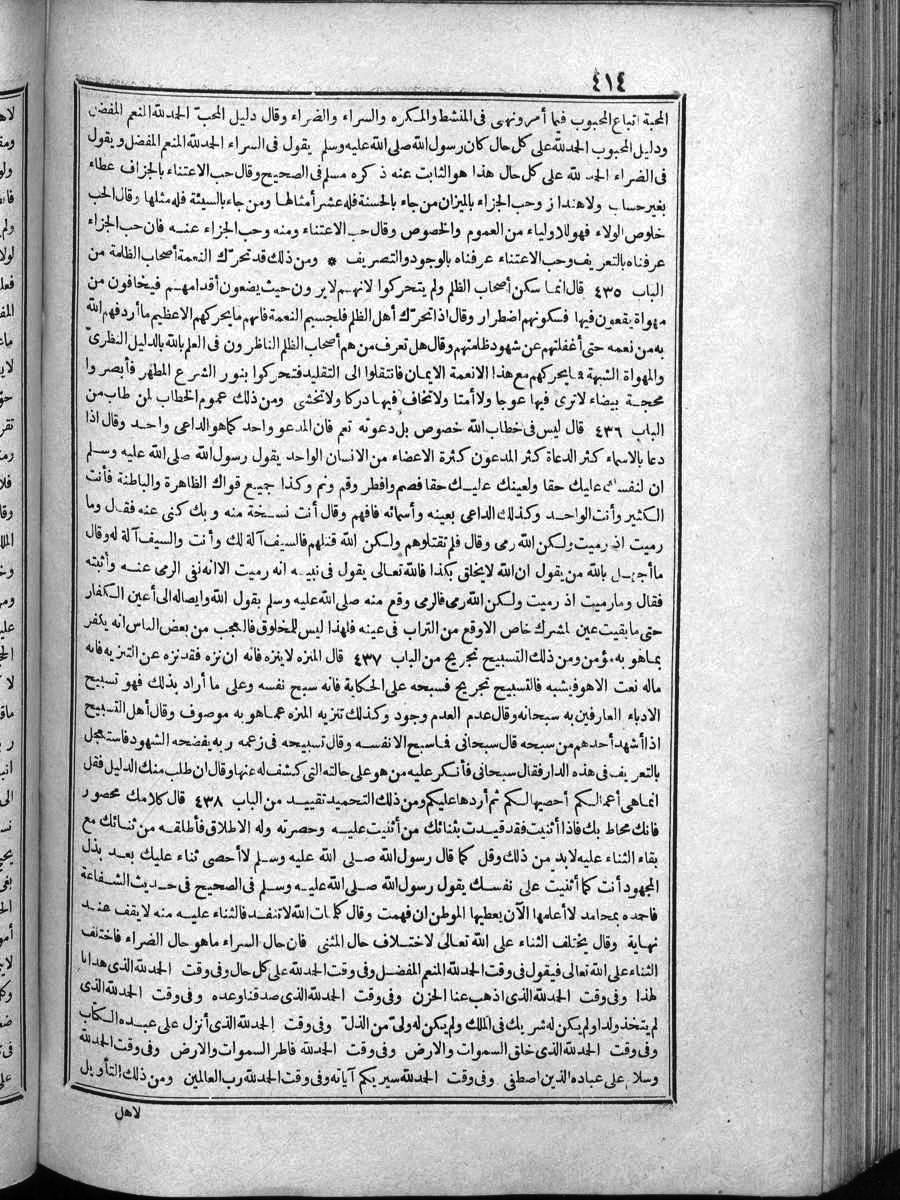 ٤١٤
المحبة اتباع المحبوب فيما أمر ونهى فى المنشط والمكره والسراء والضراء وقال دليل المحبة الحمد لله المنعم المفضل
ودليل المحبوب الحمد لله على كل حال كان رسول الله صلى الله عليه وسلم يقول فى السراء الحمد لله المنعم المفضل ويقول
فى الضراء الحمد لله على كل حال هذا هو الثابت عنه ذكره مسلم فى الصحيح وقال حب الاعتناء بالجزاف عطاء
بغير حساب ولا هنداز وحب الجزاء بالميزان من جاء بالحسنة فله عشر أمثالها ومن جاء بالسيئة فله مثلها وقال الحب
خلوص الولاء فهو للاولياء من العموم والخصوص وقال حب الاعتناء ومنه وحب الجزاء عنه فان حب الجزاء
عرفناه بالتعريف وحب الاعتناء عرفناه بالوجود والتصريف * ومن ذلك قد تحرّك النعمة أصحاب الظلمة من
الباب ٤٣٥ قال انما سكن أصحاب الظلم ولم يتحركوا لانهم لا يرون حيث يضعون أقدامهم فيخافون من
مهواة يقعون فيها فسكونهم اضطرار وقال اذا تحرّك أهل الظلم فلجسيم النعمة فانهم ما يحركهم الا عظيم ما أردفهم الله
به من نعمه حتى أغفلتهم عن شهود ظلمتهم وقال هل تعرف من هم أصحاب الظلم الناظرون فى العلم بالله بالدليل النظرىّ
والمهواة الشبهة فما يحركهم مع هذا الا نعمة الايمان فانتقلوا الى التقليد فتحركوا بنور الشرع المطهر فأبصروا
محجة بيضاء لا ترى فيها عوجا ولا أمتا ولا تخاف فيها دركا ولا تخشى ومن ذلك عموم الخطاب لمن طاب من
الباب ٤٣٦ قال ليس فى خطاب الله خصوص بل دعوته تعم فان المدعو واحد كما هو الداعى واحد وقال اذا
دعا بالاسماء كثر الدعاة كثر المدعون كثرة الاعضاء من الانسان الواحد يقول رسول الله صلى الله عليه وسلم
ان لنفسك عليك حقا ولعينك عليك حقا فصم وافطر وقم ونم وكذا جميع قواك الظاهرة والباطنة فأنت
الكثير وأنت الواحد وكذلك الداعى بعينه وأسمائه فافهم وقال أنت نسخة منه وبك كنى عنه فقال وما
رميت اذ رميت ولكن الله رمى وقال فلم تقتلوهم ولكن الله قتلهم فالسيف آلة لك وأنت والسيف آلة له وقال
ما أجهل بالله من يقول ان الله لا يخلق بكذا فالله تعالى يقول فى نبيه انه رميت الا انه نفى الرمى عنه وأثبته
فقال وما رميت اذ رميت ولكن الله رمى فالرمى وقع منه صلى الله عليه وسلم بقول الله وايصاله الى أعين الكفار
حتى ما بقيت عين لمشرك خاص الا وقع من التراب فى عينه فلهذا ليس للمخلوق فالعجب من بعض الناس انه يكفر
بما هو به مؤمن ومن ذلك التسبيح تجريح من الباب ٤٣٧ قال المنزه لا ينزه فانه ان نزه فقد نزه عن التنزيه فانه
ماله نعت الا هو فيشبه فالتسبيح تجريح فسبحه على الحكاية فانه سبح نفسه وعلى ما أراد بذلك فهو تسبيح
الادباء العارفين به سبحانه وقال عدم العدم وجود وكذلك تنزيه المنزه عما هو به موصوف وقال أهل التسبيح
اذا أشهد أحدهم من سبحه قال سبحانى فما سبح الا نفسه وقال تسبيحه فى زعمه ربه يفضحه الشهود فاستعجل
بالتعريف فى هذه الدار فقال سبحانى فأنكر عليه من هو على حالته التى كشف له عنها وقال ان طلب منك الدليل فقل
انما هى أعمالكم أحصيها لكم ثم أردها عليكم ومن ذلك التحميد تقييد من الباب ٤٣٨ قال كلامك محصور
فانك محاط بك فاذا أثنيت فقد قيدت بثنائك من أثنيت عليه وحصرته وله الاطلاق فأطلقه من ثنائك مع
بقاء الثناء عليه لابد من ذلك وقل كما قال رسول الله صلى الله عليه وسلم لا أحصى ثناء عليك بعد بذل
المجهود أنت كما أثنيت على نفسك يقول رسول الله صلى الله عليه وسلم فى الصحيح فى حديث الشفاعة
فاحمده بمحامد لا أعلمها الآن يعطيها الموطن ان فهمت وقال كلمات الله لا تنفد فالثناء عليه منه لا يقف عند
نهاية وقال يختلف الثناء على الله تعالى لاختلاف حال المثنى فان حال السراء ما هو حال الضراء فاختلف
الثناء على الله تعالى فيقول فى وقت الحمد لله المنعم المفضل وفى وقت الحمد لله على كل حال وفى وقت الحمد لله الذى هدانا
لهذا وفى وقت الحمد لله الذى اذهب عنا الحزن وفى وقت الحمد لله الذى صدقنا وعده وفى وقت الحمد لله الذى
لم يتخذ ولدا ولم يكن له شريك فى الملك ولم يكن له ولىّ من الذلّ وفى وقت الحمد لله الذى أنزل على عبده الكتاب
وفى وقت الحمد لله الذى خلق السموات والارض وفى وقت الحمد لله فاطر السموات والارض وفى وقت الحمد لله
وسلام على عباده الذين اصطفى وفى وقت الحمد لله سيريكم آياته وفى وقت الحمد لله رب العالمين ومن ذلك التأويل
لاهل